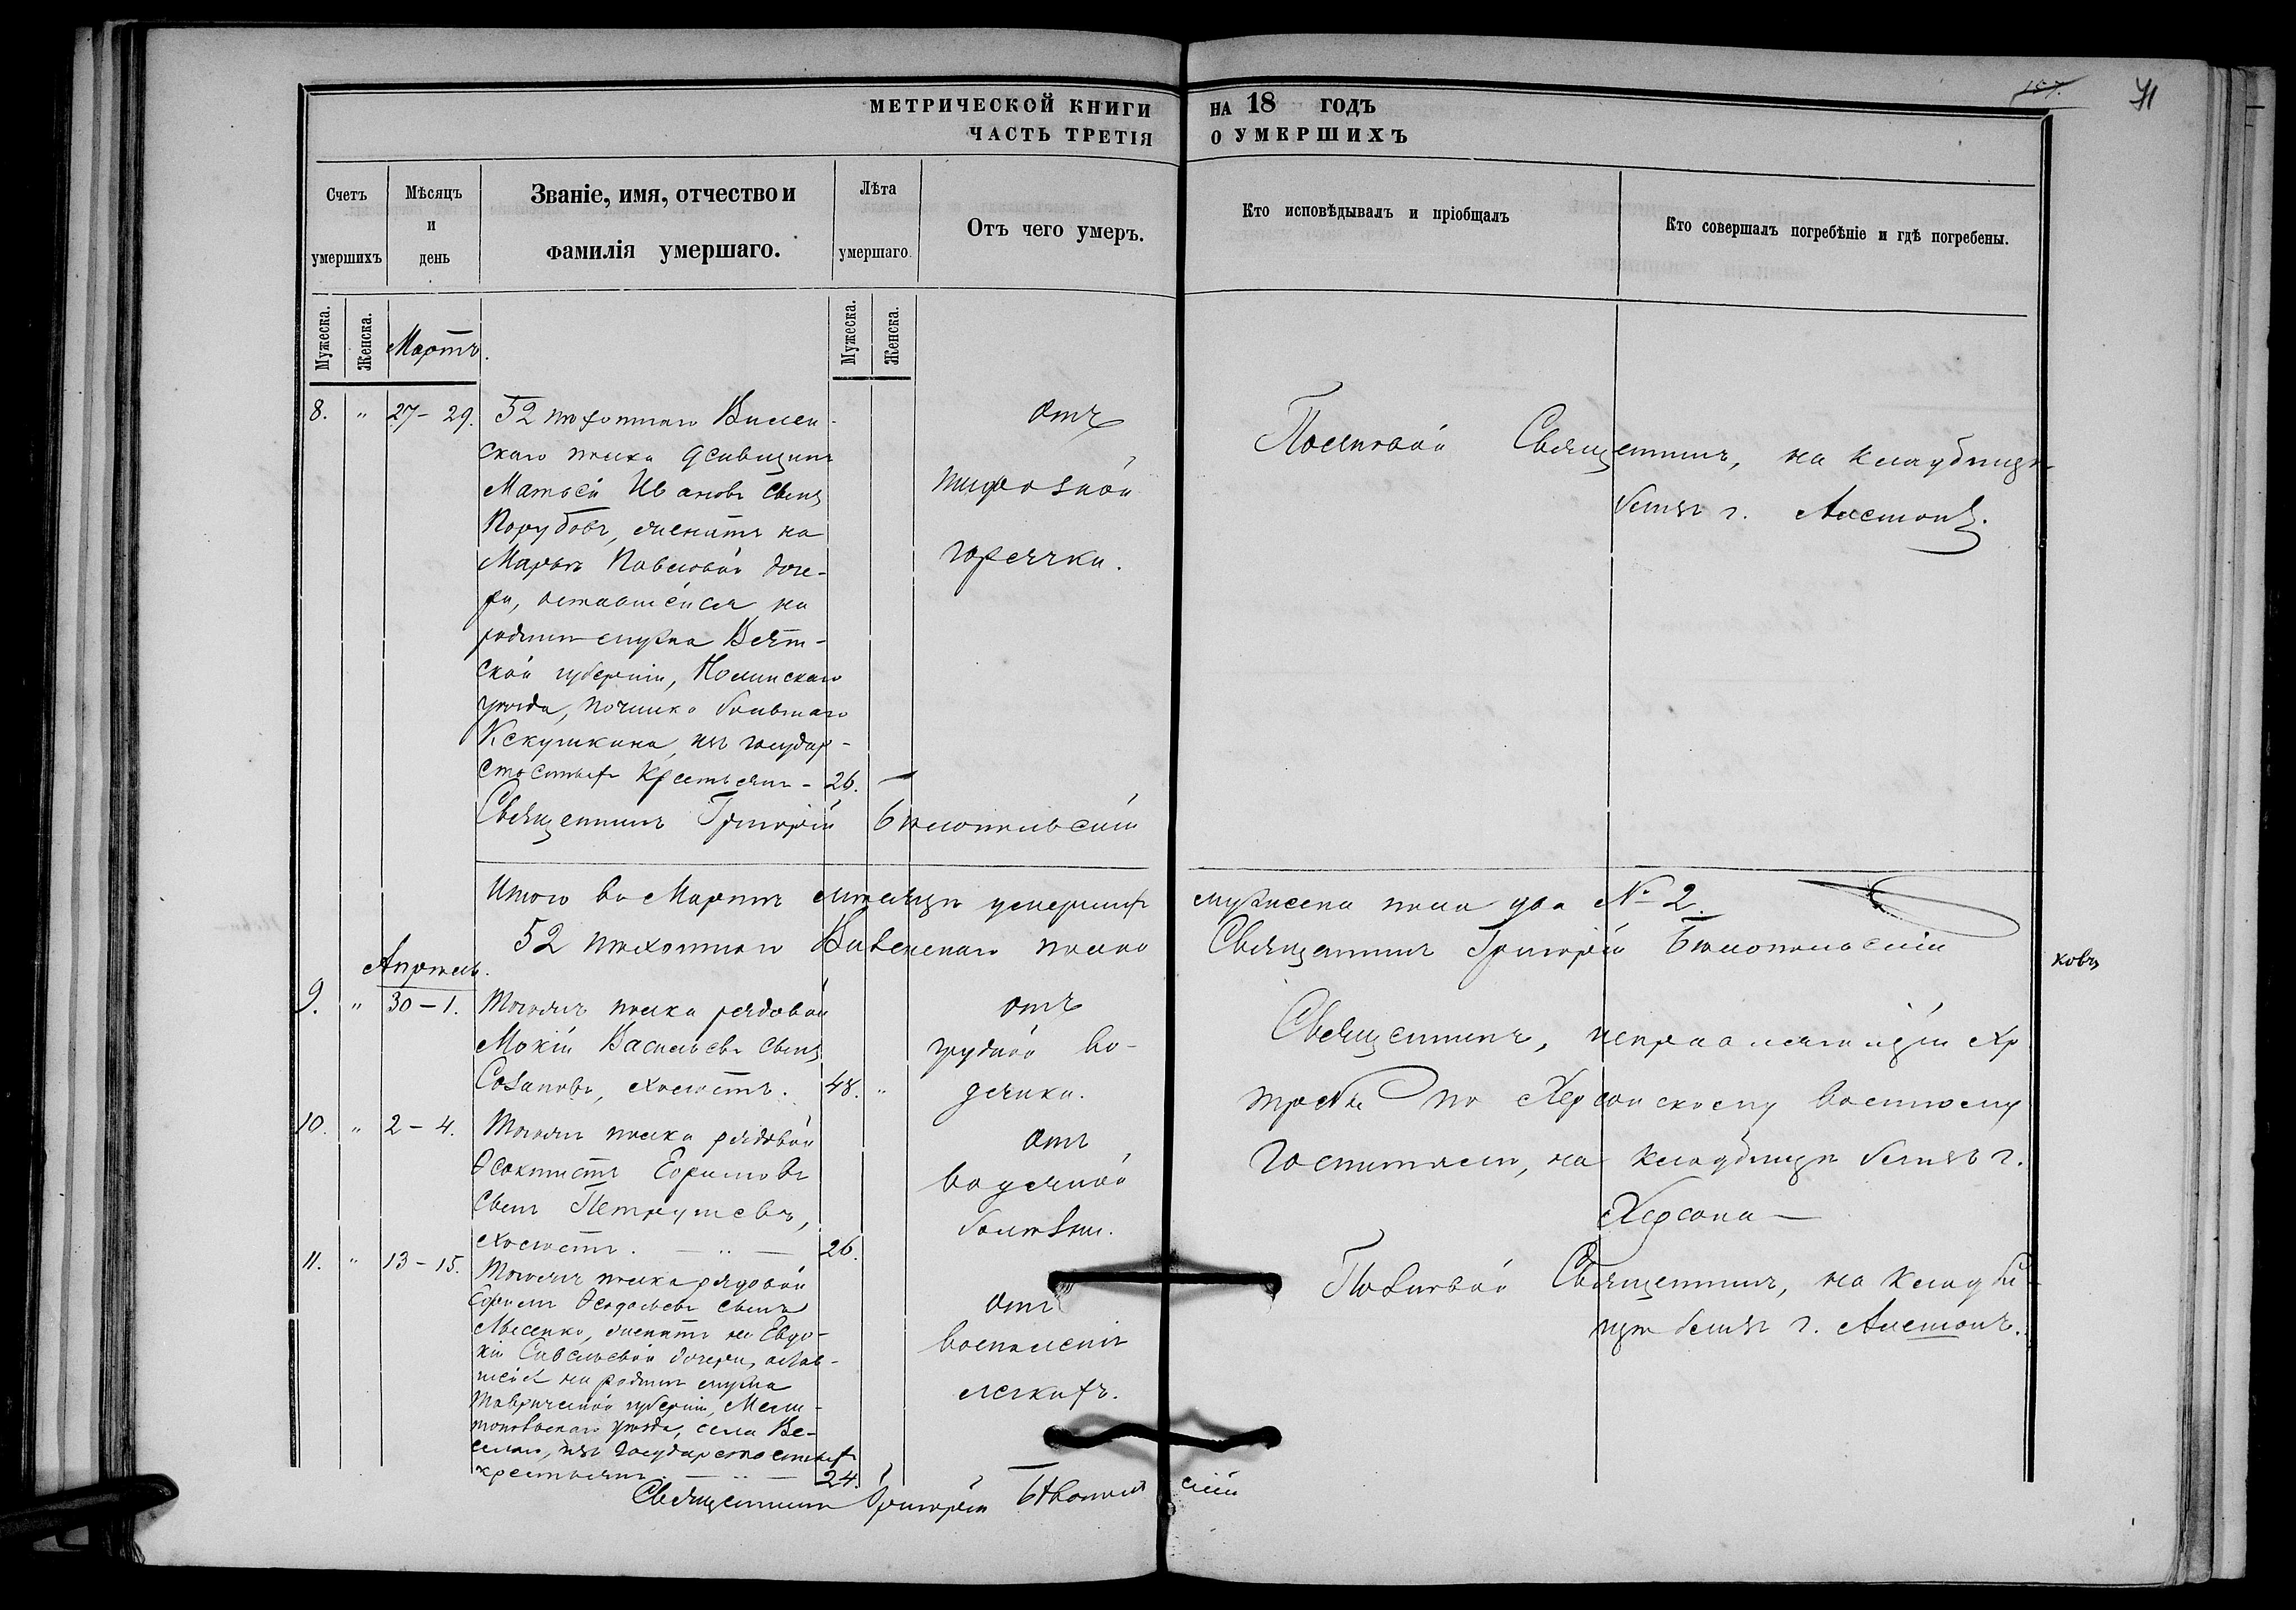 157.
71
МЕТРИЧЕСКОЙ КНИГИ НА 18 ГОДЪ
ЧАСТЬ ТРЕТІЯ О УМЕРШИХЪ
Счетъ умершихъ
Мѣсяцъ и день
Званіе, имя, отчество и фамилія умершаго.
Лѣта умершаго.
Отъ чего умеръ.
Кто исповѣдывалъ и пріобщалъ
Кто совершалъ погребѣніе и гдѣ погребены.
Мужеска. Женска.
Мартъ.
Мужеска. Женска.
8. " 27–29.
52 пѣхотнаго Вилен-
скаго полка
Матвѣй Ивановъ сынъ
Порубовъ, женатъ на
Марьѣ Павловой доче-
ри, оставшейся на
родинѣ мужа Вят-
ской губерніи, Нолинскаго
уѣзда, починка
изъ государ-
ственныхъ крестьянъ – 26. –
отъ
тифозной
горячки.
Полковой Священникъ, на кладбищѣ
близъ г. Алешекъ.
Священникъ Григорій Бѣлопольскій
Итого въ Мартѣ мѣсяцѣ умершихъ мужеска пола два № 2.
52 пѣхотнаго Виленскаго полка Священникъ Григорій Бѣлопольскій
Апрѣль.
9. " 30–1.
Тогожъ полка рядовой
Мокій Васильевъ сынъ
Созановъ, холостъ. 48. "
отъ
грудной во-
дянки.
Священникъ, исправляющій хр
ковъ
требы по Херсонскому военному
госпиталю, на кладбищѣ близъ г.
Херсона –
10. " 2–4.
Тогожъ полка рядовой
Ѳеоктистъ Ефимовъ
сынъ Петрушевъ,
холостъ. – " – 26.
отъ
водяной
болѣзни.
11. " 13–15.
Тогожъ полка рядовой
Ефимъ Ѳедосѣевъ сынъ
Лысенко, женатъ на Евдо-
кіи Савельевой дочери, остав-
шейся на родинѣ мужа
Таврической губерніи, Мели-
топольскаго уѣзда, села Ве-
селаго, изъ государственныхъ
крестьянъ. – " – 24.
отъ
воспаленія
легкихъ.
Полковой Священникъ, на кладби-
щѣ близъ г. Алешекъ.
Священникъ Григорій Бѣлопольскій